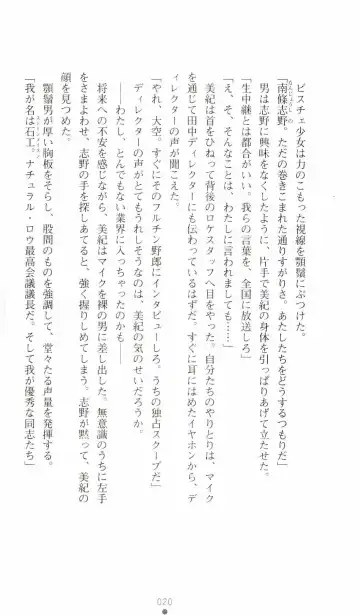 ビスチェ少女は力のこもった視線を顎鬚にぶつけた。
「南條志野。ただの巻きこまれた通りすがりさ。あたしたちをどうするつもりだ」
男は志野に興味をなくしたように、片手で美紀の身体を引っぱりあげて立たせた。
「生中継とは都合がいい。我らの言葉を、全国に放送しろ」
「え、そ、そんなことは、わたしに言われましても……」
美紀は首をひねって背後のロケスタッフへ目をやった。自分たちのやりとりは、マイク
を通じて田中ディレクターにも伝わっているはずだ。すぐに耳にはめたイヤホンから、デ
ィレクターの声が聞こえた。
「やれ、大空。すぐにそのフルチン野郎にインタビューしろ。うちの独占スクープだ」
ディレクターの声がとてもうれしそうなのは、美紀の気のせいだろうか。
――わたし、とんでもない業界に入っちゃったのかも――
将来への不安を感じながら、美紀はマイクを裸の男に差し出した。無意識のうちに左手
をさまよわせ、志野の手を探しあてると、強く握りしめてしまう。志野が黙って、美紀の
顔を見つめた。
顎鬚男が厚い胸板をそらし、股間のものを強調して、堂々たる声量を発揮する。
「我が名は石工。ナチュラル・ロウ最高会議議長だ。そして我が優秀な同志たち」
020